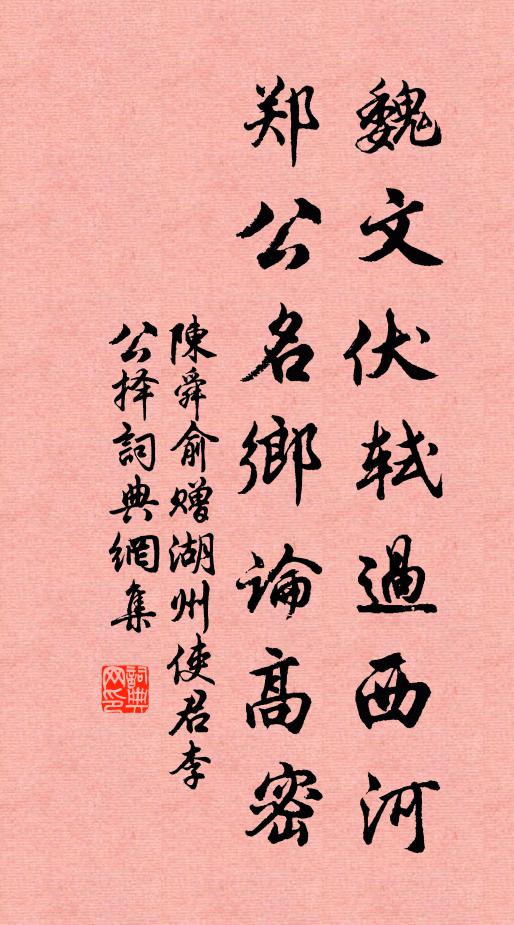 魏文伏轼過西河
郑公名鄉論高密
陳舜俞赠湖州使君李
公择詞典網集
詞典網印